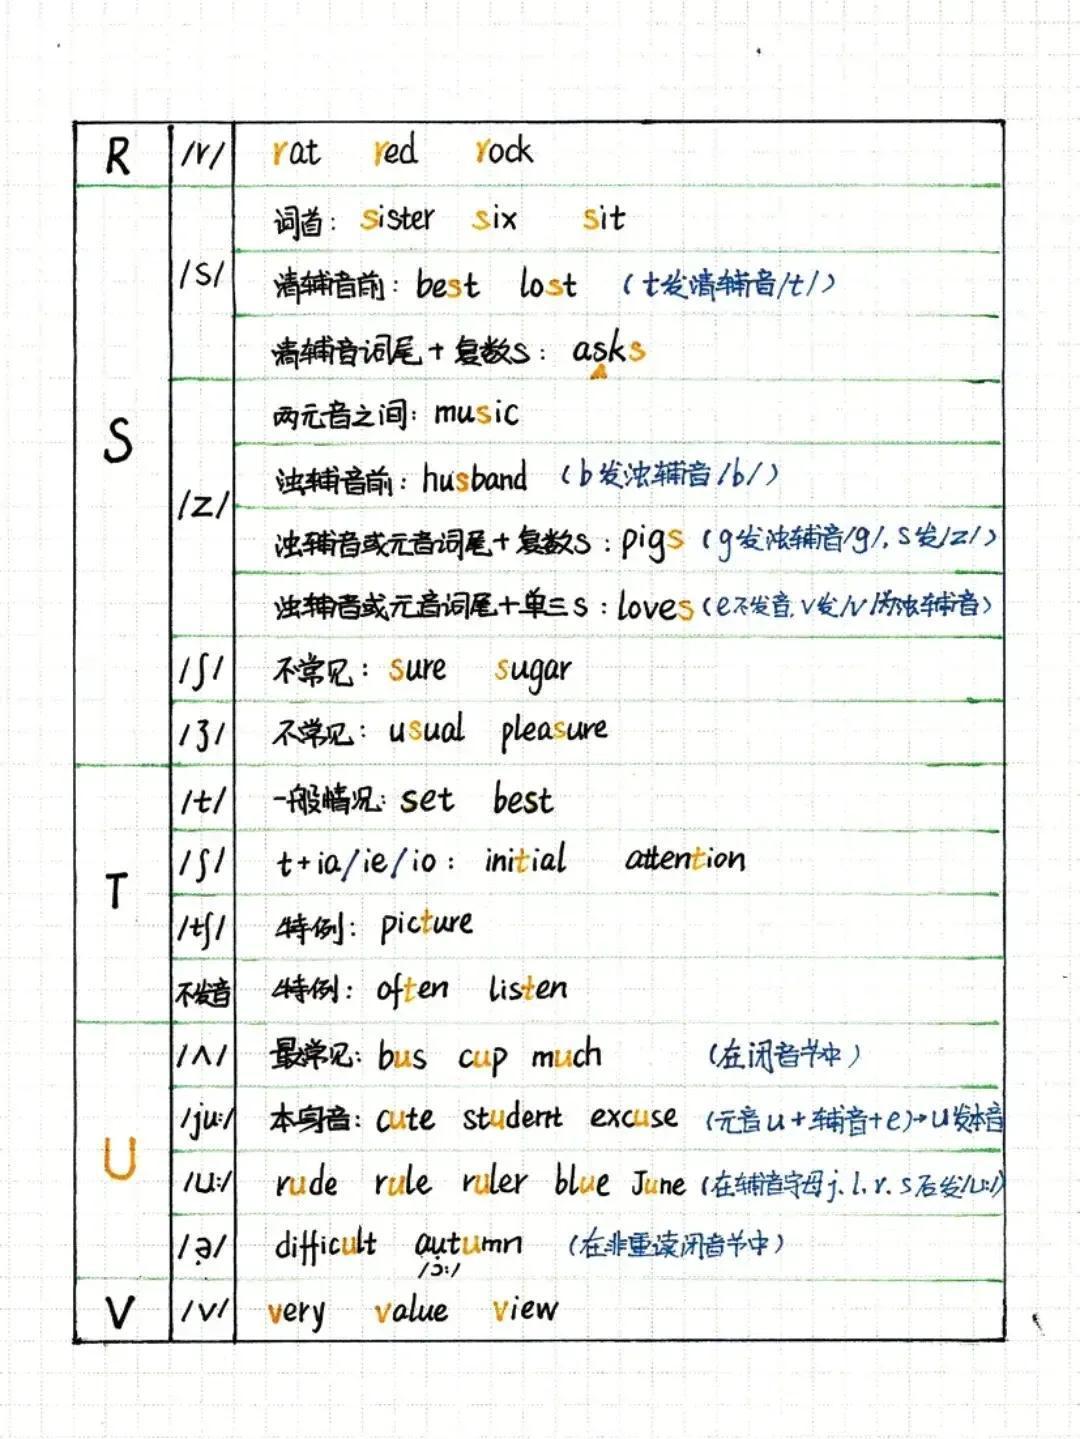 R /r/ rat red rock
词首: sister six sit
/s/ 清辅音前: best lost (t发清辅音/t/)
清辅音词尾+复数s: asks
S
两元音之间: music
浊辅音前: husband (b发浊辅音/b/)
/z/
浊辅音或元音词尾+复数s: pigs (g发浊辅音/g/, s发/z/)
浊辅音或元音词尾+单三s: loves (e不发音, v发/v/为浊辅音)
/ʃ/ 不常见: sure sugar
/ʒ/ 不常见: usual pleasure
/t/ 一般情况: set best
/ʃ/ t+ia/ie/io: initial attention
T
/tʃ/ 特例: picture
不发音 特例: often listen
/ʌ/ 最常见: bus cup much (在闭音节中)
/ju:/ 本身音: cute student excuse (元音u+辅音+e)→u发本音
U
/u:/ rude rule ruler blue June (在辅音字母j.l.r.s后发/u:/)
/ə/ difficult autumn (在非重读闭音节中)
/ɔ:/
V /v/ very value view